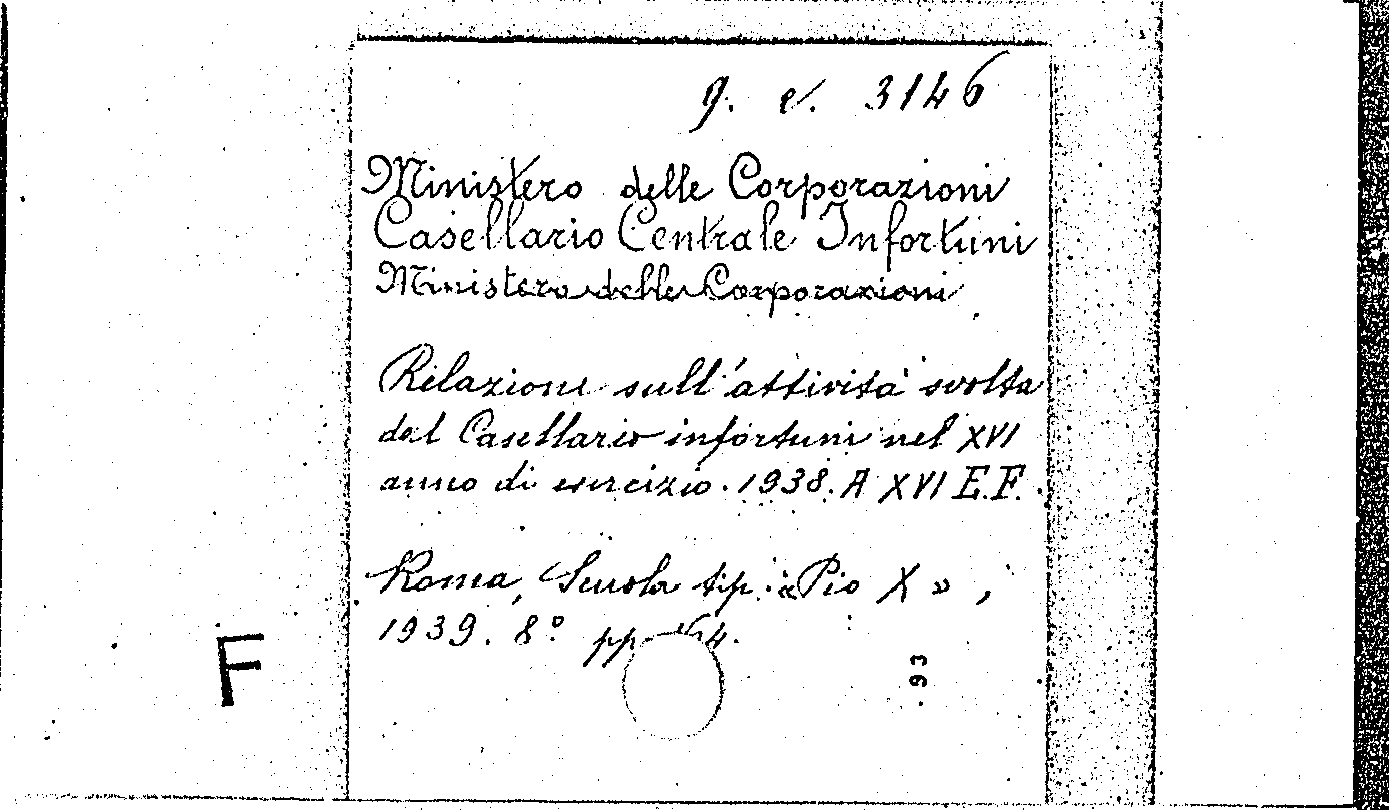 g. e. 3146
Ministero delle Corporazioni
Casellario Centrale Infortuni
Ministero delle Corporazioni
Relazione sull'attività svolta
dal Casellario infortuni nel XVI
anno di esercizio. 1938. A XVI E.F.
Roma, Scuola tip. « Pio X » ,
1939. 8° pp.
93
F